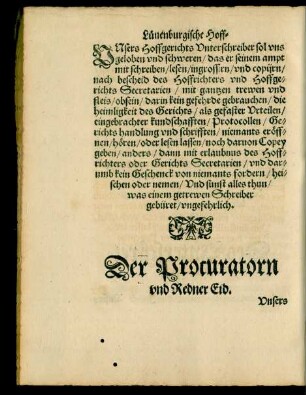 Lünenburgische Hoff-
VNsers Hoffgerichts Vnterschreiber sol vns
geloben vnd schweren / das er seinem ampt
mit schreiben / lesen / ingrossirn / vnd copijrn /
nach bescheid des Hoffrichters vnd Hoffge-
richts Secretarien / mit gantzen trewen vnd
fleis / obsein / darin kein gefehrde gebrauchen / die
heimligkeit des Gerichts / als gefaster Vrteilen /
eingebrachter kundschafften / Protocollen / Ge-
richts handlung vnd schrifften / niemants eröff-
nen / hören / oder lesen lassen / noch daruon Copey
geben / anders / dann mit erlaubnus des Hoff-
richters oder Gerichts Secretarien / vnd dar-
umb kein Geschenck von niemants fordern / hei-
schen oder nemen / Vnd sunst alles thun /
was einem getrewen Schreiber
gebüret / vngefehrlich.
Der Procuratorn
vnd Redner Eid.
Vnsers